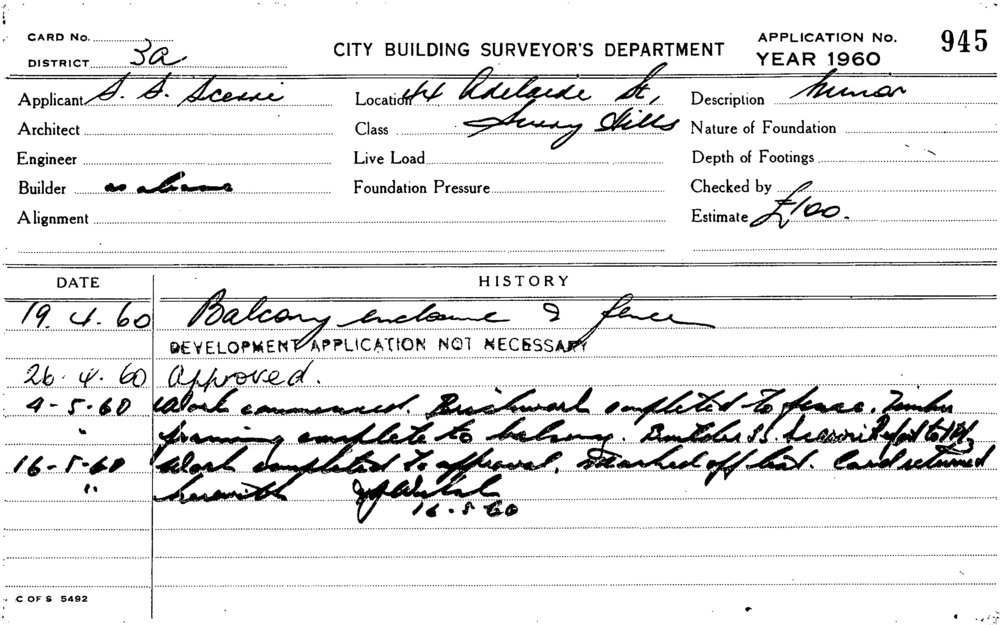 CARD No.
DISTRICT 3a
CITY BUILDING SURVEYOR'S DEPARTMENT
APPLICATION No. 945
YEAR 1960
Applicant S. S. Scerri
Location 44 Adelaide St,
Description Minor
Architect
Class Surry Hills
Nature of Foundation
Engineer
Live Load
Depth of Footings
Builder as above
Foundation Pressure
Checked by
Alignment
Estimate £100.
DATE HISTORY
19.4.60 Balcony enclosure & fence
DEVELOPMENT APPLICATION NOT NECESSARY
26.4.60 Approved.
4-5-60 Work commenced. Brickwork completed to fence. Timber
" framing complete to balcony. Builder S.S. Scerri
16-5-60 Work completed to approval, marked off list. Card returned
" herewith
16-5-60
C OF S 5492